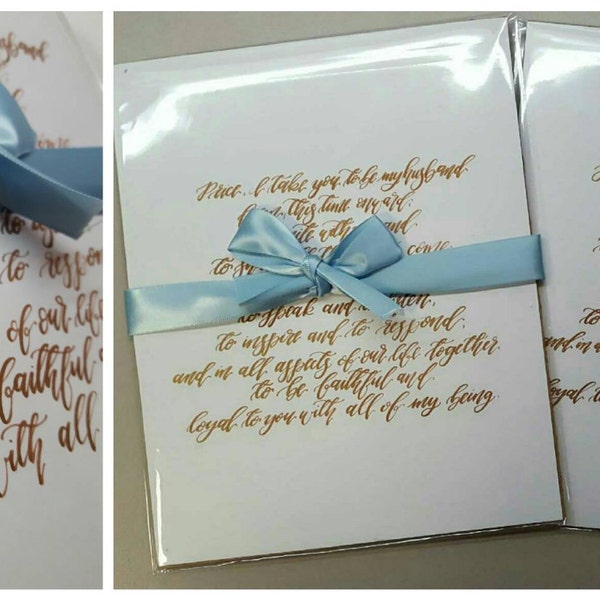 husband
to respond
of our life
faithful
with all
Price, I take you to be my husband
from this time onward,
to speak and
to inspire and to respond,
and in all aspects of our life together
to be faithful and
loyal to you with all of my being.